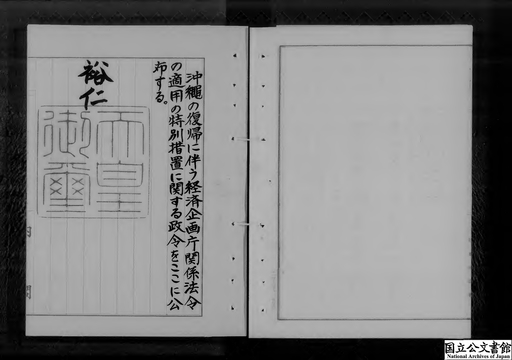 沖縄の復帰に伴う経済企画庁関係法令
の適用の特別措置に関する政令をここに公
布する。
裕仁
天皇
御璽
国立公文書館
National Archives of Japan